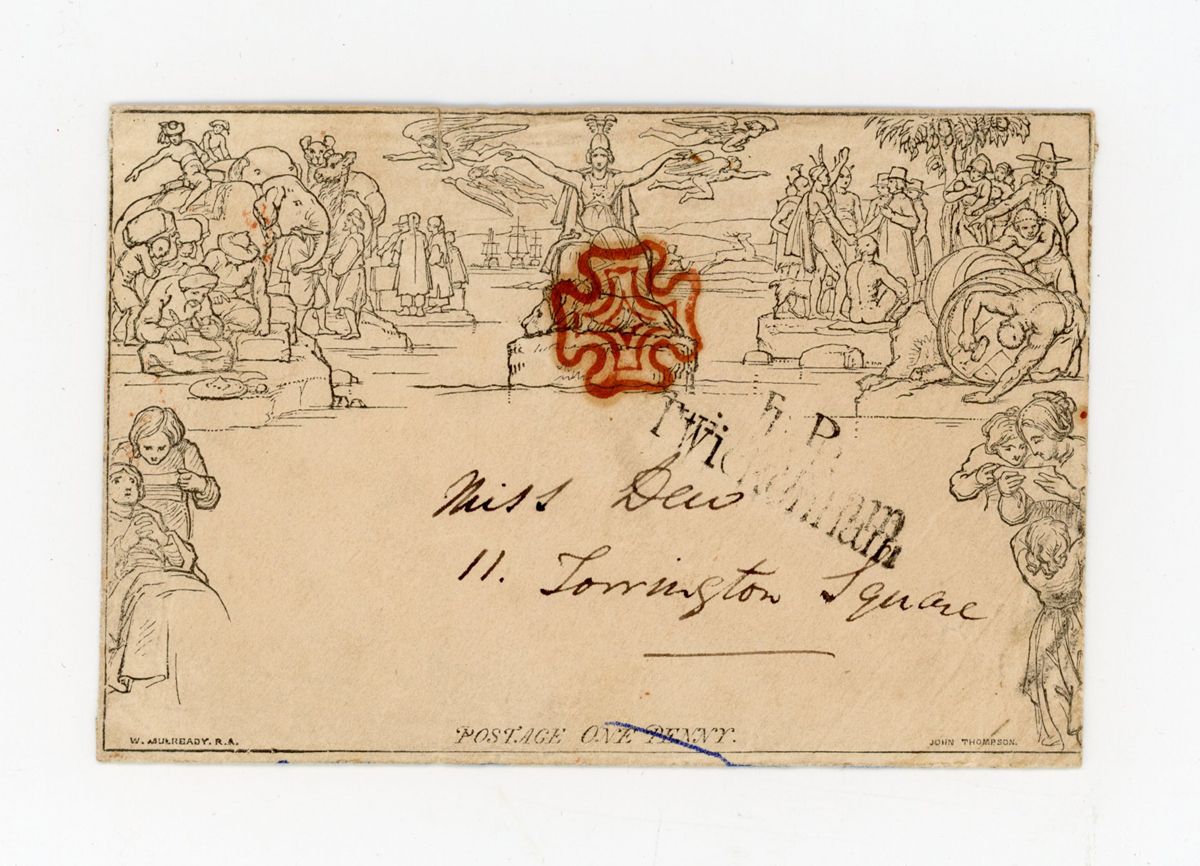 5. P
Twickenham
Miss Dew
11. Torrington Square
POSTAGE ONE PENNY.
W. MULREADY. R.A.
JOHN THOMPSON.